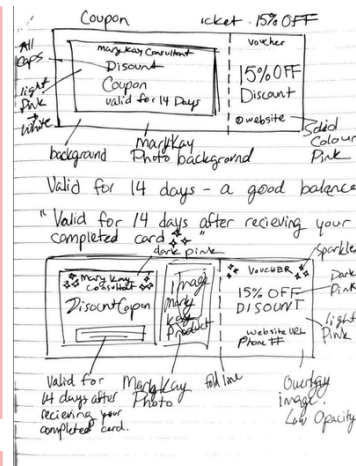 Coupon Ticket - 15% OFF
All
Caps
light
Pink
→
white
Mary Kay Consultant
Disount
Coupon
Valid for 14 Days
Voucher
15% OFF
Discount
website
background
MaryKay
Photo background
Solid
Colour
Pink
Valid for 14 days - a good balance
"Valid for 14 days after recieving your
completed card "
dark pink
sparkles
Mary Kay
Consultant
Discount Coupon
Image
Mary
Kay
Product
VOUCHER
15% OFF
DISOUNT
Website URL
Phone #
Dark
Pink
light
Pink
Valid for
14 days after
recieving your
completed card.
Mary Kay
Photo
fold line
Overlay
image.
Low Opacity